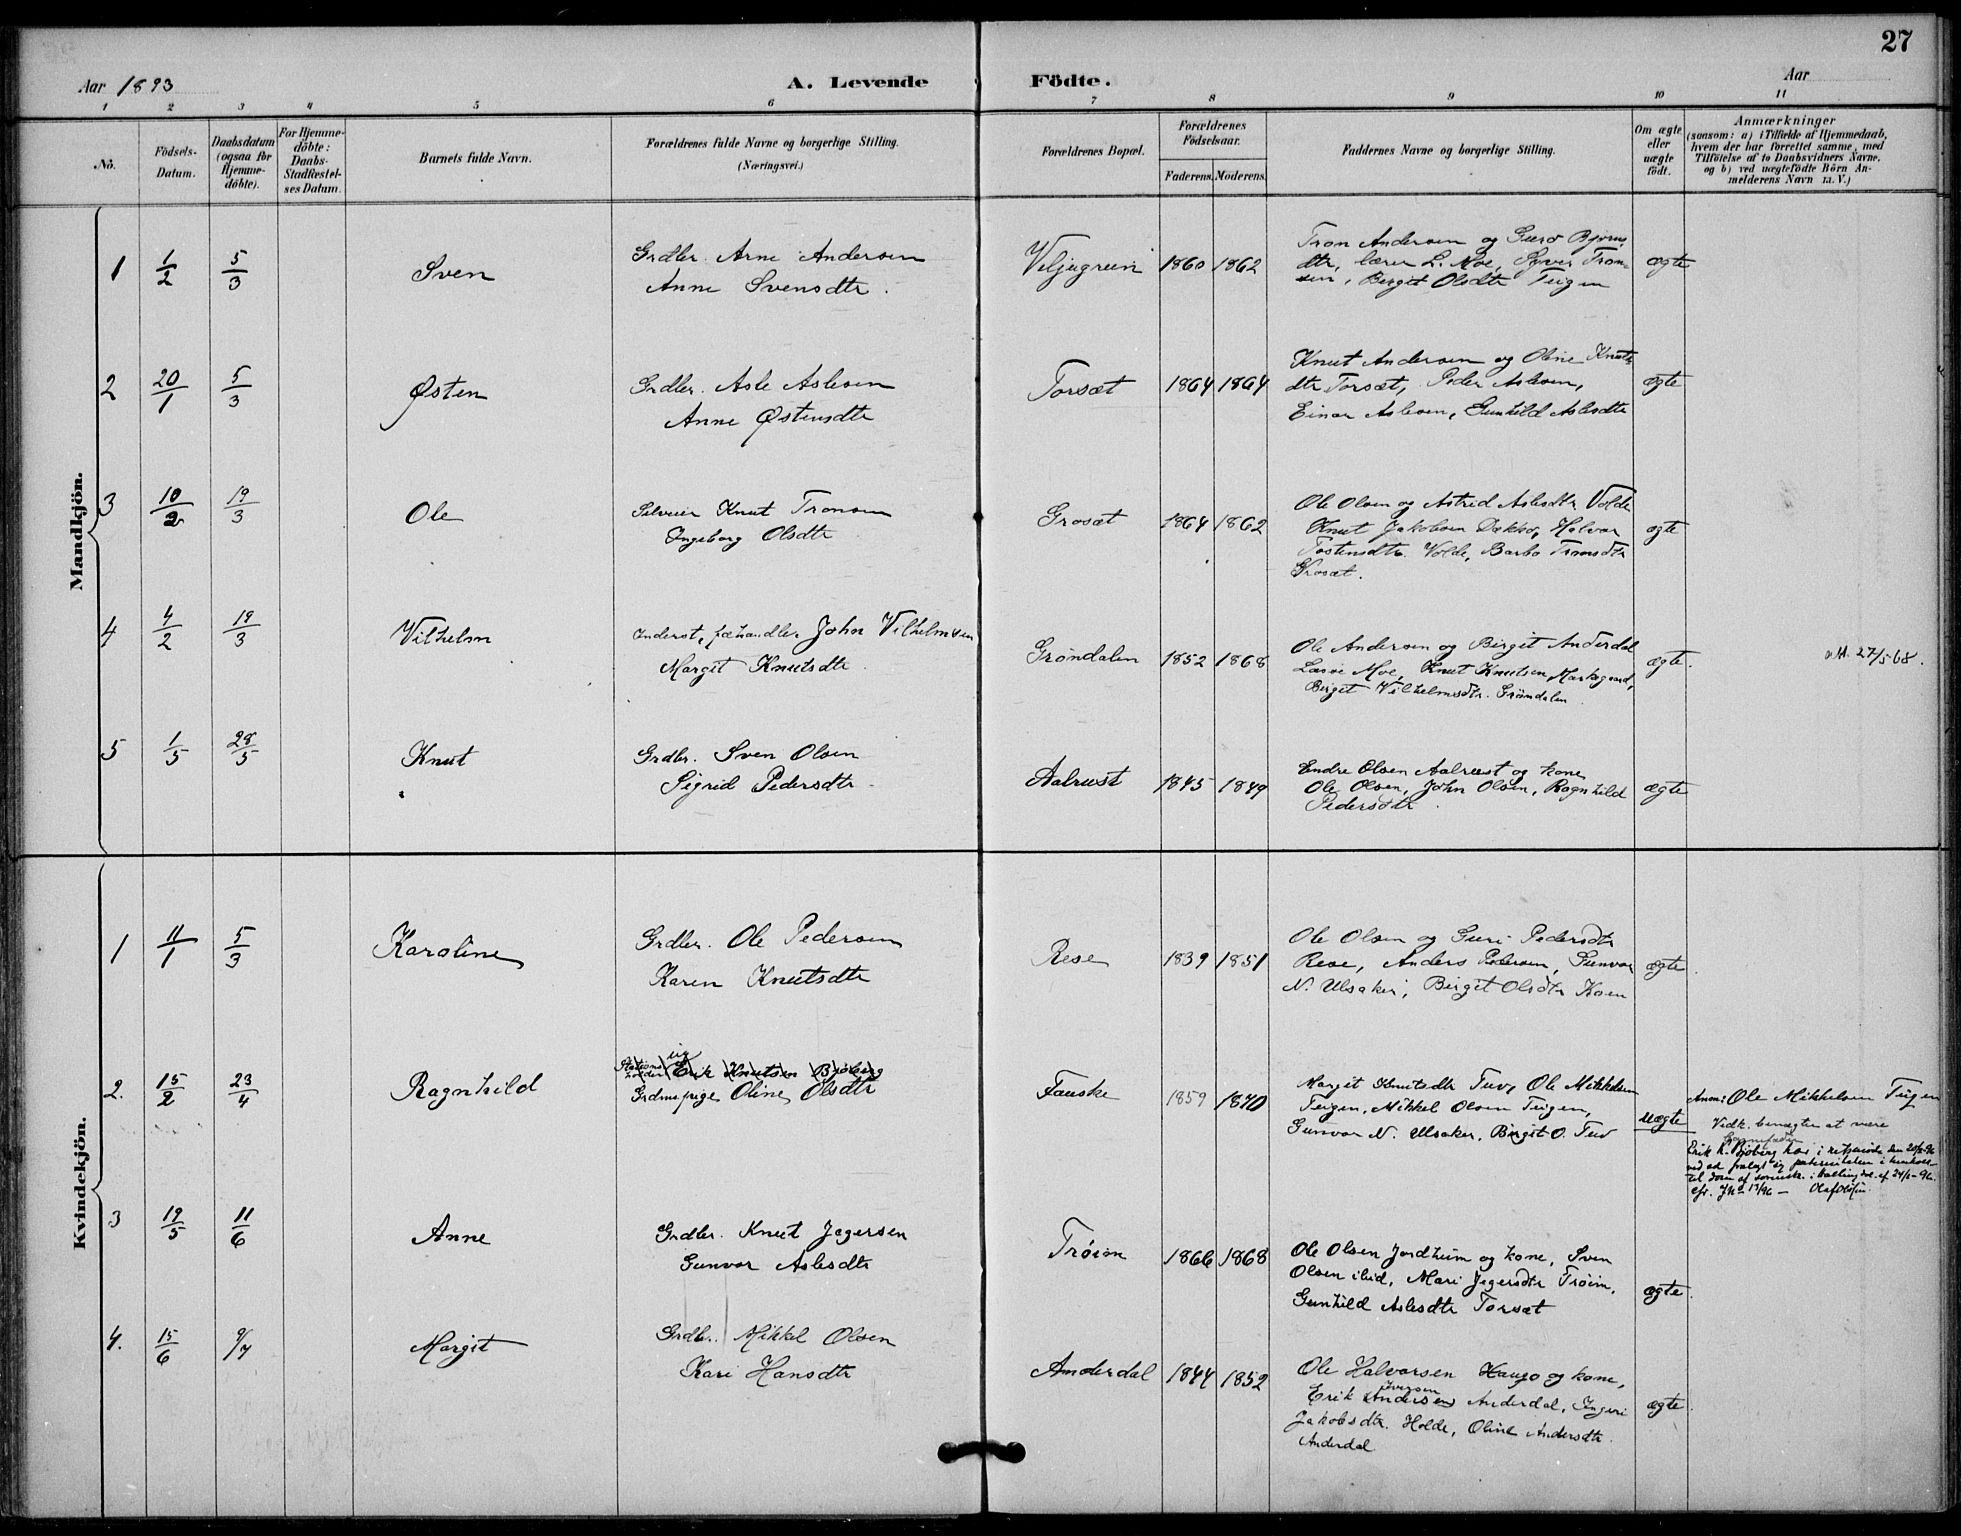 27
Aar 1893
A. Levende
Födte.
Aar
1 2 3 4 5 6 7 8 9 10 11
No.
Födsels-
Datum.
Daabsdatum
(ogsaa for
Hjemme-
döbte).
For Hjemme-
döbte:
Daabs-
Stadfæstel-
ses Datum.
Barnets fulde Navn.
Forældrenes fulde Navne og borgerlige Stilling.
(Næringsvei.)
Forældrenes Bopæl.
Forældrenes
Födselsaar.
Faderens. Moderens.
Faddernes Navne og borgerlige Stilling.
Om ægte
eller
uægte
födt.
Anmærkninger
(saasom: a) i Tilfælde af Hjemmedaab,
hvem der har forrettet samme, med
Tilföielse af to Daabsvidners Navne,
og b) ved uægtefödte Börn An-
melderens Navn m. V.)
Mandkjön.
1 1/2 5/3 Sven
Grdbr. Arne Andersen
Anne Svensdtr.
Veljugrein 1860 1862
Tron Andersen og Guro Bjørns
dtr, lærer L. Moe, Syver Tron-
sen, Birgit Olsdtr Teigen
ægte
2 20/1 5/3 Østen
Grdbr. Asle Aslesen
Anne Østensdtr
Torsæt 1864 1864
Knut Andersen og Oline Knuts
dtr Torsæt, Peder Aslesen,
Einar Aslesen, Gunhild Aslesdtr
ægte
3 10/2 19/3 Ole
Selveier Knut Tronsen
Ingeborg Olsdtr
Grosæt 1864 1862
Ole Olsen og Astrid Aslesdtr Volde
Knut Jakobsen Dokko, Halvor
Tostensdtr. Volde, Barbo Tronsdtr
Grosæt.
ægte
4 4/2 19/3 Vilhelm
Inderst, fæhandler John Vilhelmsen
Margit Knutsdtr
Grøndalen 1852 1868
Ole Andersen og Birgit Anderdal
Lasse Moe, Knut Knutsen Markegaard,
Birgit Vilhelmsdtr. Grøndalen
ægte.
att. 27/5-68.
5 1/5 28/5 Knut
Grdbr. Sven Olsen
Sigrid Pedersdtr
Aalrust 1845 1849
Endre Olsen Aalrust og kone
Ole Olsen, John Olsen, Ragnhild
Pedersdtr.
ægte
Kvindekjön.
1 11/1 5/3 Karoline
Grdbr. Ole Pedersen
Karen Knutsdtr
Rese 1839 1851
Ole Olsen og Guri Pedersdtr
Rese, Anders Pedersen, Gunvor
N. Ulsaker, Birgit Olsdtr Koen
ægte.
2. 15/2 23/4 Ragnhild
ug
Stations
holder Erik Knutsen Bjøberg
Grdmspige Oline Olsdtr
Fauske 1859 1870
Margit Knutsdtr Tuv, Ole Mikkelsen
Teigen, Mikkel Olsen Teigen,
Gunvor N. Ulsaker, Birgit O. Tuv
uægte
Anm: Ole Mikkelsen Teigen
Vedk. benægter at være
Barnefader
Erik K. Bjøberg har i retsmøde den
ved ed fralagt sig paterniteten i henhold
til dom af sorenskr. i Hallingdal af 24/1-96.
cfr. Jk 17/96 — Olaf Olafsen
3 19/5 11/6 Anne
Grdbr. Knut Jegersen
Gunvor Aslesdtr
Trøim 1866 1868
Ole Olsen Jordheim og kone, Sven
Olsen ibid, Mari Jegersdtr Trøim,
Gunhild Aslesdtr Torsæt
ægte.
4. 15/6 9/7 Margit
Grdbr. Mikkel Olsen
Kari Hansdtr
Anderdal 1844 1852
Ole Halvorsen Haugo og kone,
Iversen
Erik Andersen Anderdal, Ingeri
Jakobsdtr. Holde, Oline Andersdtr.
Anderdal
ægte.